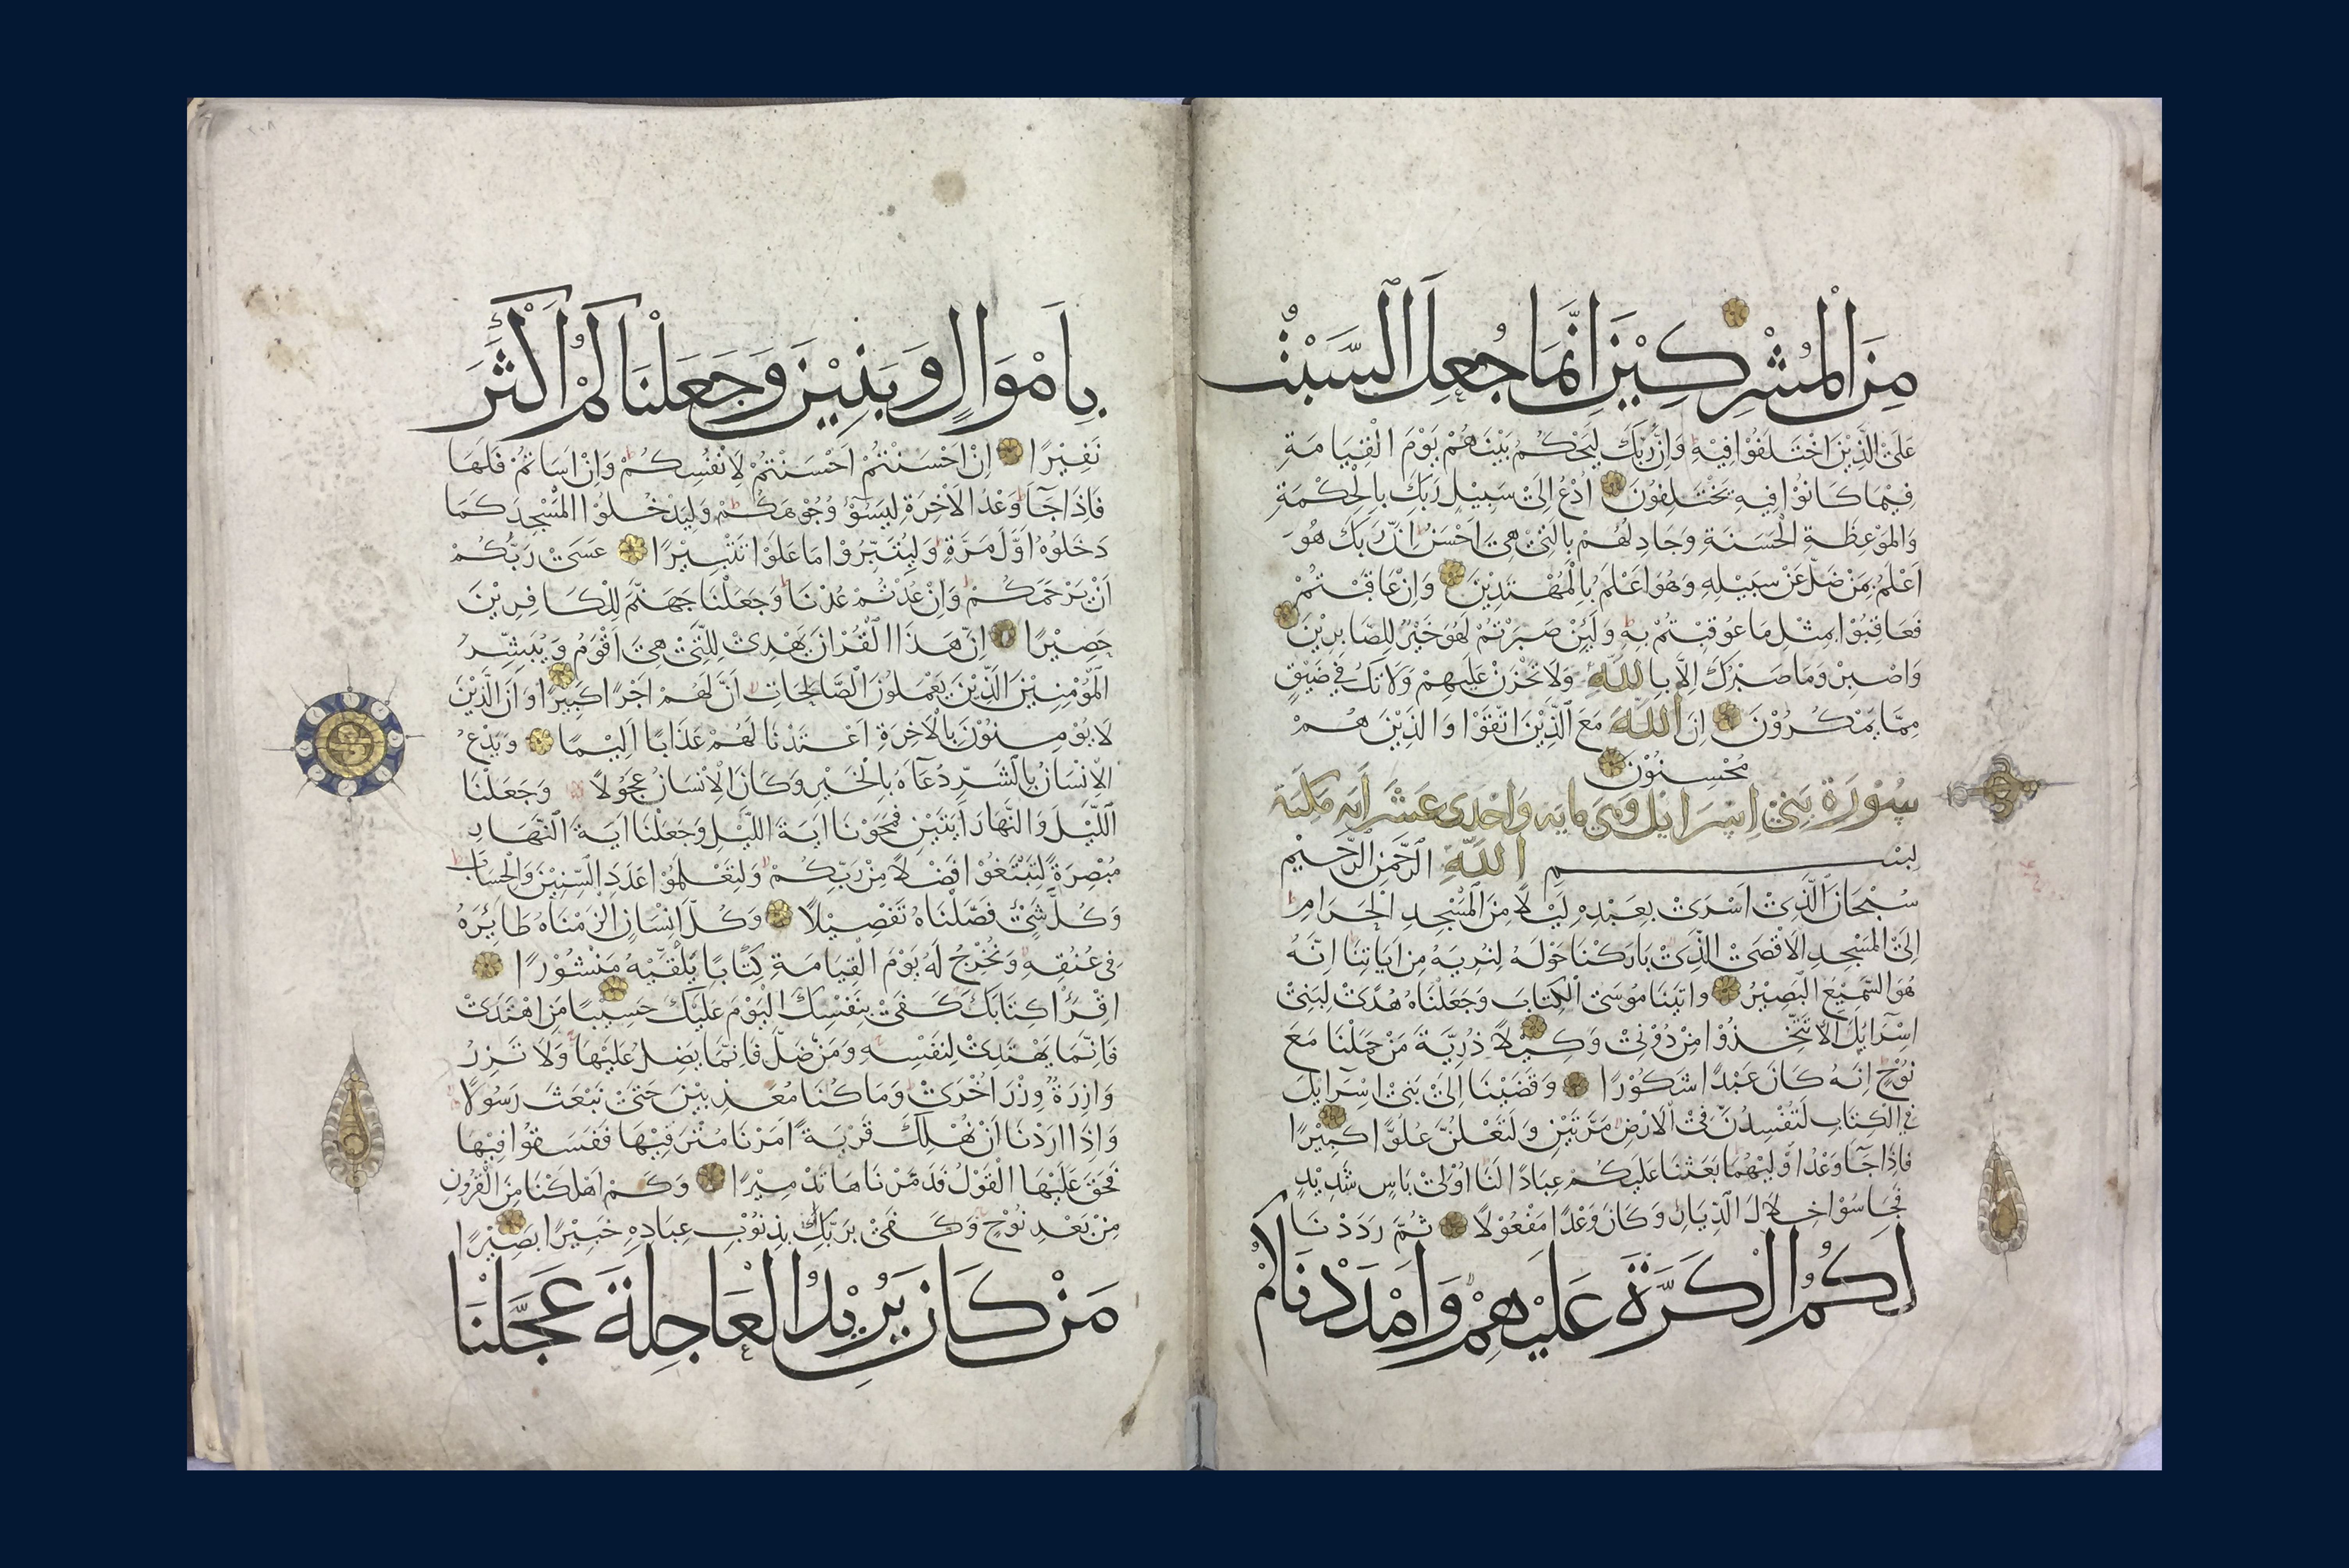 مِنَ الْمُشْرِكِيْنَ اِنَّمَا جُعِلَ السَّبْتُ
عَلَىْ الَّذِيْنَ اخْتَلَفُوْا فِيْهِ وَاِنَّ رَبَّكَ لَيَحْكُمُ بَيْنَهُمْ يَوْمَ الْقِيَامَةِ
فِيْمَا كَانُوْا فِيهِ يَخْتَلِفُوْنَ اُدْعُ اِلَىْ سَبِيْلِ رَبِّكَ بِالْحِكْمَةِ
وَالْمَوْعِظَةِ الْحَسَنَةِ وَجَادِلْهُمْ بِالَّتِيْ هِيَ اَحْسَنُ اِنَّ رَبَّكَ هُوَ
اَعْلَمُ بِمَنْ ضَلَّ عَنْ سَبِيْلِهِ وَهُوَ اَعْلَمُ بِالْمُهْتَدِيْنَ وَاِنْ عَاقَبْتُمْ
فَعَاقِبُوْا بِمِثْلِ مَا عُوْقِبْتُمْ بِهِ وَلَئِنْ صَبَرْتُمْ لَهُوَ خَيْرٌ لِلصَّابِرِيْنَ
وَاصْبِرْ وَمَا صَبْرُكَ اِلَّا بِاللّٰهِ وَلَا تَحْزَنْ عَلَيْهِمْ وَلَا تَكُ فِيْ ضَيْقٍ
مِمَّا يَمْكُرُوْنَ اِنَّ اللّٰهَ مَعَ الَّذِيْنَ اتَّقَوْا وَالَّذِيْنَ هُمْ
مُحْسِنُوْنَ
سُوْرَة بَنِيْ اِسْرَايِل وَهِيَ مايه وَاحْدى عَشَر ايه مكية
بِسْمِ اللّٰهِ الرَّحْمٰنِ الرَّحِيْمِ
سُبْحَانَ الَّذِيْ اَسْرَىْ بِعَبْدِهِ لَيْلًا مِنَ الْمَسْجِدِ الْحَرَامِ
اِلَىْ الْمَسْجِدِ الْاَقْصَىْ الَّذِيْ بَارَكْنَا حَوْلَهُ لِنُرِيَهُ مِنْ اٰيَاتِنَا اِنَّهُ
هُوَ السَّمِيْعُ الْبَصِيْرُ وَاٰتَيْنَا مُوْسَىْ الْكِتَابَ وَجَعَلْنَاهُ هُدًىْ لِبَنِيْ
اِسْرَايِلَ اَلَّا تَتَّخِذُوْا مِنْ دُوْنِيْ وَكِيْلًا ذُرِّيَّةَ مَنْ حَمَلْنَا مَعَ
نُوْحٍ اِنَّهُ كَانَ عَبْدًا شَكُوْرًا وَقَضَيْنَا اِلَىْ بَنِيْ اِسْرَايِلَ
فِي الْكِتَابِ لَتُفْسِدُنَّ فِيْ الْاَرْضِ مَرَّتَيْنِ وَلَتَعْلُنَّ عُلُوًّا كَبِيْرًا
فَاِذَا جَآ وَعْدُ اُوْلٰيهُمَا بَعَثْنَا عَلَيْكُمْ عِبَادًا لَنَا اُوْلِيْ بَاْسٍ شَدِيْدٍ
فَجَاسُوْا خِلَالَ الدِّيَارِ وَكَانَ وَعْدًا مَفْعُوْلًا ثُمَّ رَدَدْنَا
لَكُمُ الْكَرَّةَ عَلَيْهِمْ وَاَمْدَدْنَاكُمْ
بِاَمْوَالٍ وَبَنِيْنَ وَجَعَلْنَاكُمْ اَكْثَرَ
نَفِيْرًا اِنْ اَحْسَنْتُمْ اَحْسَنْتُمْ لِاَنْفُسِكُمْ وَاِنْ اَسَاْتُمْ فَلَهَا
فَاِذَا جَآ وَعْدُ الْاٰخِرَةِ لِيَسُوْؤُ وُجُوْهَكُمْ وَلِيَدْخُلُوْا الْمَسْجِدَ كَمَا
دَخَلُوْهُ اَوَّلَ مَرَّةٍ وَلِيُتَبِّرُوْا مَا عَلَوْا تَتْبِيْرًا عَسَىْ رَبُّكُمْ
اَنْ يَرْحَمَكُمْ وَاِنْ عُدْتُمْ عُدْنَا وَجَعَلْنَا جَهَنَّمَ لِلْكَافِرِيْنَ
حَصِيْرًا اِنَّ هَذَا الْقُرْاٰنَ يَهْدِيْ لِلَّتِيْ هِيَ اَقْوَمُ وَيُبَشِّرُ
الْمُؤْمِنِيْنَ الَّذِيْنَ يَعْمَلُوْنَ الصَّالِحَاتِ اَنَّ لَهُمْ اَجْرًا كَبِيْرًا وَاَنَّ الَّذِيْنَ
لَا يُؤْمِنُوْنَ بِالْاٰخِرَةِ اَعْتَدْنَا لَهُمْ عَذَابًا اَلِيْمًا وَيَدْعُ
الْاِنْسَانُ بِالشَّرِّ دُعَآءَهُ بِالْخَيْرِ وَكَانَ الْاِنْسَانُ عَجُوْلًا وَجَعَلْنَا
اللَّيْلَ وَالنَّهَارَ اٰيَتَيْنِ فَمَحَوْنَا اٰيَةَ اللَّيْلِ وَجَعَلْنَا اٰيَةَ النَّهَارِ
مُبْصِرَةً لِتَبْتَغُوْا فَضْلًا مِنْ رَبِّكُمْ وَلِتَعْلَمُوْا عَدَدَ السِّنِيْنَ وَالْحِسَابَ
وَكُلَّ شَيْءٍ فَصَّلْنَاهُ تَفْصِيْلًا وَكُلَّ اِنْسَانٍ اَلْزَمْنَاهُ طَائِرَهُ
فِيْ عُنُقِهِ وَنُخْرِجُ لَهُ يَوْمَ الْقِيَامَةِ كِتَابًا يَلْقٰيهُ مَنْشُوْرًا
اِقْرَأْ كِتَابَكَ كَفَىْ بِنَفْسِكَ الْيَوْمَ عَلَيْكَ حَسِيْبًا مَنِ اهْتَدَىْ
فَاِنَّمَا يَهْتَدِيْ لِنَفْسِهِ وَمَنْ ضَلَّ فَاِنَّمَا يَضِلُّ عَلَيْهَا وَلَا تَزِرُ
وَازِرَةٌ وِزْرَ اُخْرَىْ وَمَا كُنَّا مُعَذِّبِيْنَ حَتَّىْ نَبْعَثَ رَسُوْلًا
وَاِذَا اَرَدْنَا اَنْ نُهْلِكَ قَرْيَةً اَمَرْنَا مُتْرَفِيْهَا فَفَسَقُوْا فِيْهَا
فَحَقَّ عَلَيْهَا الْقَوْلُ فَدَمَّرْنَاهَا تَدْمِيْرًا وَكَمْ اَهْلَكْنَا مِنَ الْقُرُوْنِ
مِنْ بَعْدِ نُوْحٍ وَكَفَىْ بِرَبِّكَ بِذُنُوْبِ عِبَادِهِ خَبِيْرًا بَصِيْرًا
مَنْ كَانَ يُرِيْدُ الْعَاجِلَةَ عَجَّلْنَا